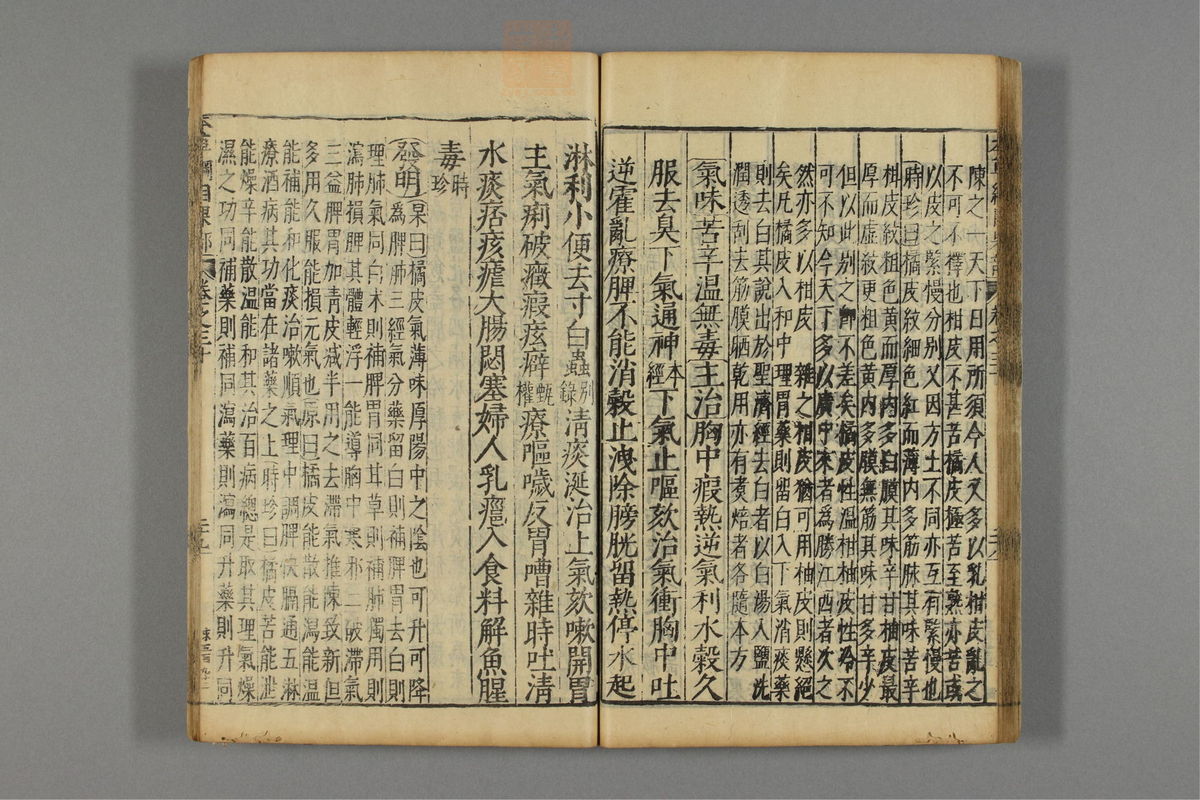 陳之一天下日用所須今人又多以乳柑皮亂之
不可不擇也柑皮不甚苦橘皮極苦至熟亦苦或
以皮之緊慢分別又因方土不同亦互有緊慢也
時珍曰橘皮紋細色紅而薄內多筋脉其味苦辛
柑皮紋粗色黃而厚內多白膜其味辛甘柚皮最
厚而虛紋更粗色黃內多膜無筋其味甘多辛少
但以此別之即不差矣橘皮性溫柑柚皮性冷不
可不知今天下多以廣中來者為勝江西者次之
然亦多以柑皮雜之柑皮猶可用柚皮則懸絕
矣凡橘皮入和中理胃藥則留白入下氣消痰藥
則去白其說出於聖濟經去白者以白湯入鹽洗
潤透刮去筋膜晒乾用亦有煮焙者各隨本方
氣味苦辛溫無毒主治胸中瘕熱逆氣利水穀久
服去臭下氣通神本經下氣止嘔欬治氣衝胸中吐
逆霍亂療脾不能消穀止洩除膀胱留熱停水起
淋利小便去寸白蟲別錄清痰涎治上氣欬嗽開胃
主氣痢破癥瘕痃癖甄權療嘔噦反胃嘈雜時吐清
水痰痞痎瘧大腸閟塞婦人乳癰入食料解魚腥
毒時珍
發明杲曰橘皮氣薄味厚陽中之陰也可升可降
為脾肺二經氣分藥留白則補脾胃去白則
理肺氣同白朮則補脾胃同甘草則補肺獨用則
瀉肺損脾其體輕浮一能導胸中寒邪二破滯氣
三益脾胃加青皮減半用之去滯氣推陳致新但
多用久服能損元氣也原曰橘皮能散能瀉能溫
能補能和化痰治嗽順氣理中調脾快膈通五淋
療酒病其功當在諸藥之上時珍曰橘皮苦能泄
能燥辛能散溫能和其治百病總是取其理氣燥
濕之功同補藥則補同瀉藥則瀉同升藥則升同
綱目果部 卷之三十